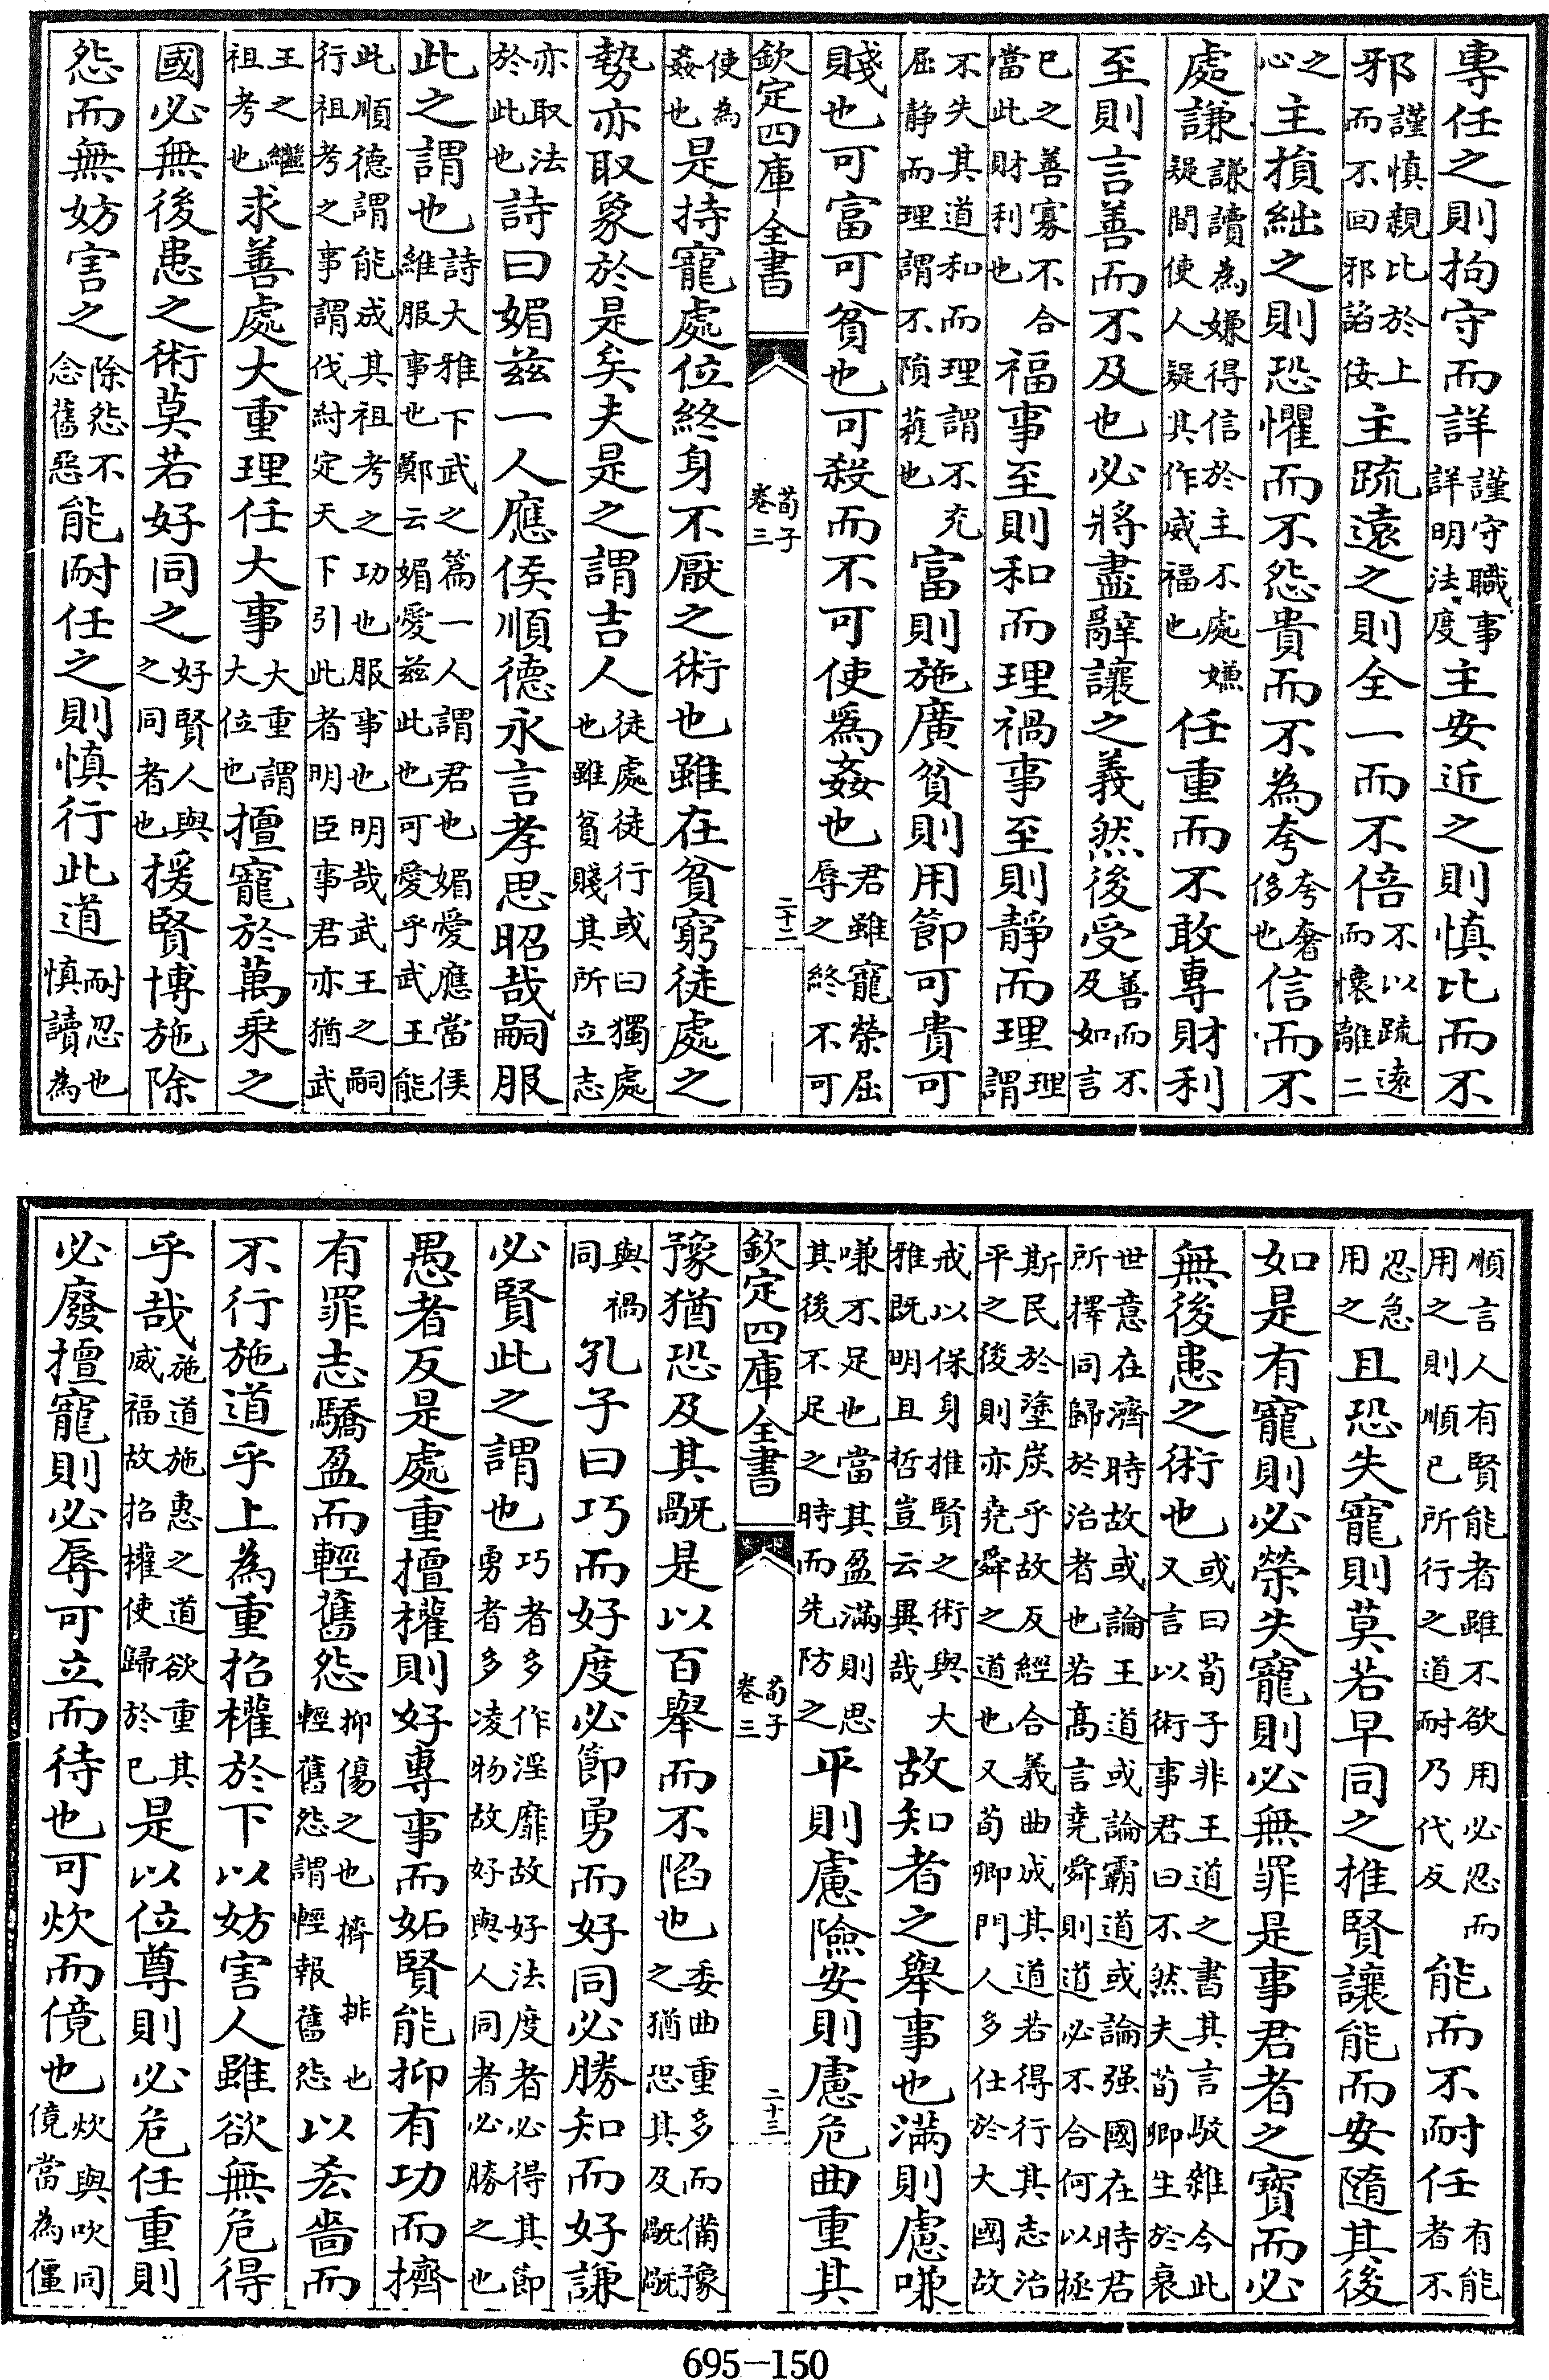 專任之則拘守而詳謹守職事詳明法度主安近之則慎比而不
邪謹慎親比於上而不回邪諂佞主疏遠之則全一而不倍不以疏遠而懷離二
之心主損絀之則恐懼而不怨貴而不為夸夸奢侈也信而不
處謙謙讀為嫌得信於主不處嫌疑間使人疑其作威福也任重而不敢專財利
至則言善而不及也必將盡辭讓之義然後受善而不及如言
已之善寡不合當此財利也福事至則和而理禍事至則静而理理謂
不失其道和而理謂不充屈静而理謂不隕穫也富則施廣貧則用節可貴可
賤也可富可貧也可殺而不可使為姦也君雖寵榮屈辱之終不可
欽定四庫全書 荀子卷三 二十二
使為姦也是持寵處位終身不厭之術也雖在貧窮徒處之
勢亦取象於是矣夫是之謂吉人徒處徒行或曰獨處也雖貧賤其所立志
亦取法於此也詩曰媚兹一人應侯順德永言孝思昭哉嗣服
此之謂也詩大雅下武之篇一人謂君也媚愛應當侯維服事也鄭云媚愛兹此也可愛乎武王能
此順德謂能成其祖考之功也服事也明哉武王之嗣行祖考之事謂伐紂定天下引此者明臣事君亦猶武
王之繼祖考也求善處大重理任大事大重謂大位也擅寵於萬乗之
國必無後患之術莫若好同之好賢人與之同者也援賢博施除
怨而無妨害之除怨不念舊惡能耐任之則慎行此道耐忍也慎讀為
順言人有賢能者雖不欲用必忍而用之則順己所行之道耐乃代反能而不耐任有能者不
忍急用之且恐失寵則莫若早同之推賢讓能而安隨其後
如是有寵則必榮失寵則必無罪是事君者之寳而必
無後患之術也或曰荀子非王道之書其言駁雜今此又言以術事君曰不然夫荀卿生於衰
世意在濟時故或論王道或論霸道或論强國在時君所擇同歸於治者也若高言堯舜則道必不合何以拯
斯民於塗炭乎故反經合義曲成其道若得行其志治平之後則亦堯舜之道也又荀卿門人多仕於大國故
戒以保身推賢之術與大雅既明且哲豈云異哉故知者之舉事也滿則慮嗛
嗛不足也當其盈滿則思其後不足之時而先防之平則慮險安則慮危曲重其
欽定四庫全書 荀子卷三 二十三
豫猶恐及其旤是以百舉而不陷也委曲重多而備豫之猶恐其及旤旤
與禍同孔子曰巧而好度必節勇而好同必勝知而好謙
必賢此之謂也巧者多作淫靡故好法度者必得其節勇者多凌物故好與人同者必勝之也
愚者反是處重擅權則好專事而妬賢能抑有功而擠
有罪志驕盈而輕舊怨抑傷之也擠排也輕舊怨謂輕報舊怨以吝嗇而
不行施道乎上為重招權於下以妨害人雖欲無危得
乎哉施道施惠之道欲重其威福故招權使歸於己是以位尊則必危任重則
必廢擅寵則必辱可立而待也可炊而傹也炊與吹同傹當為僵
695-150